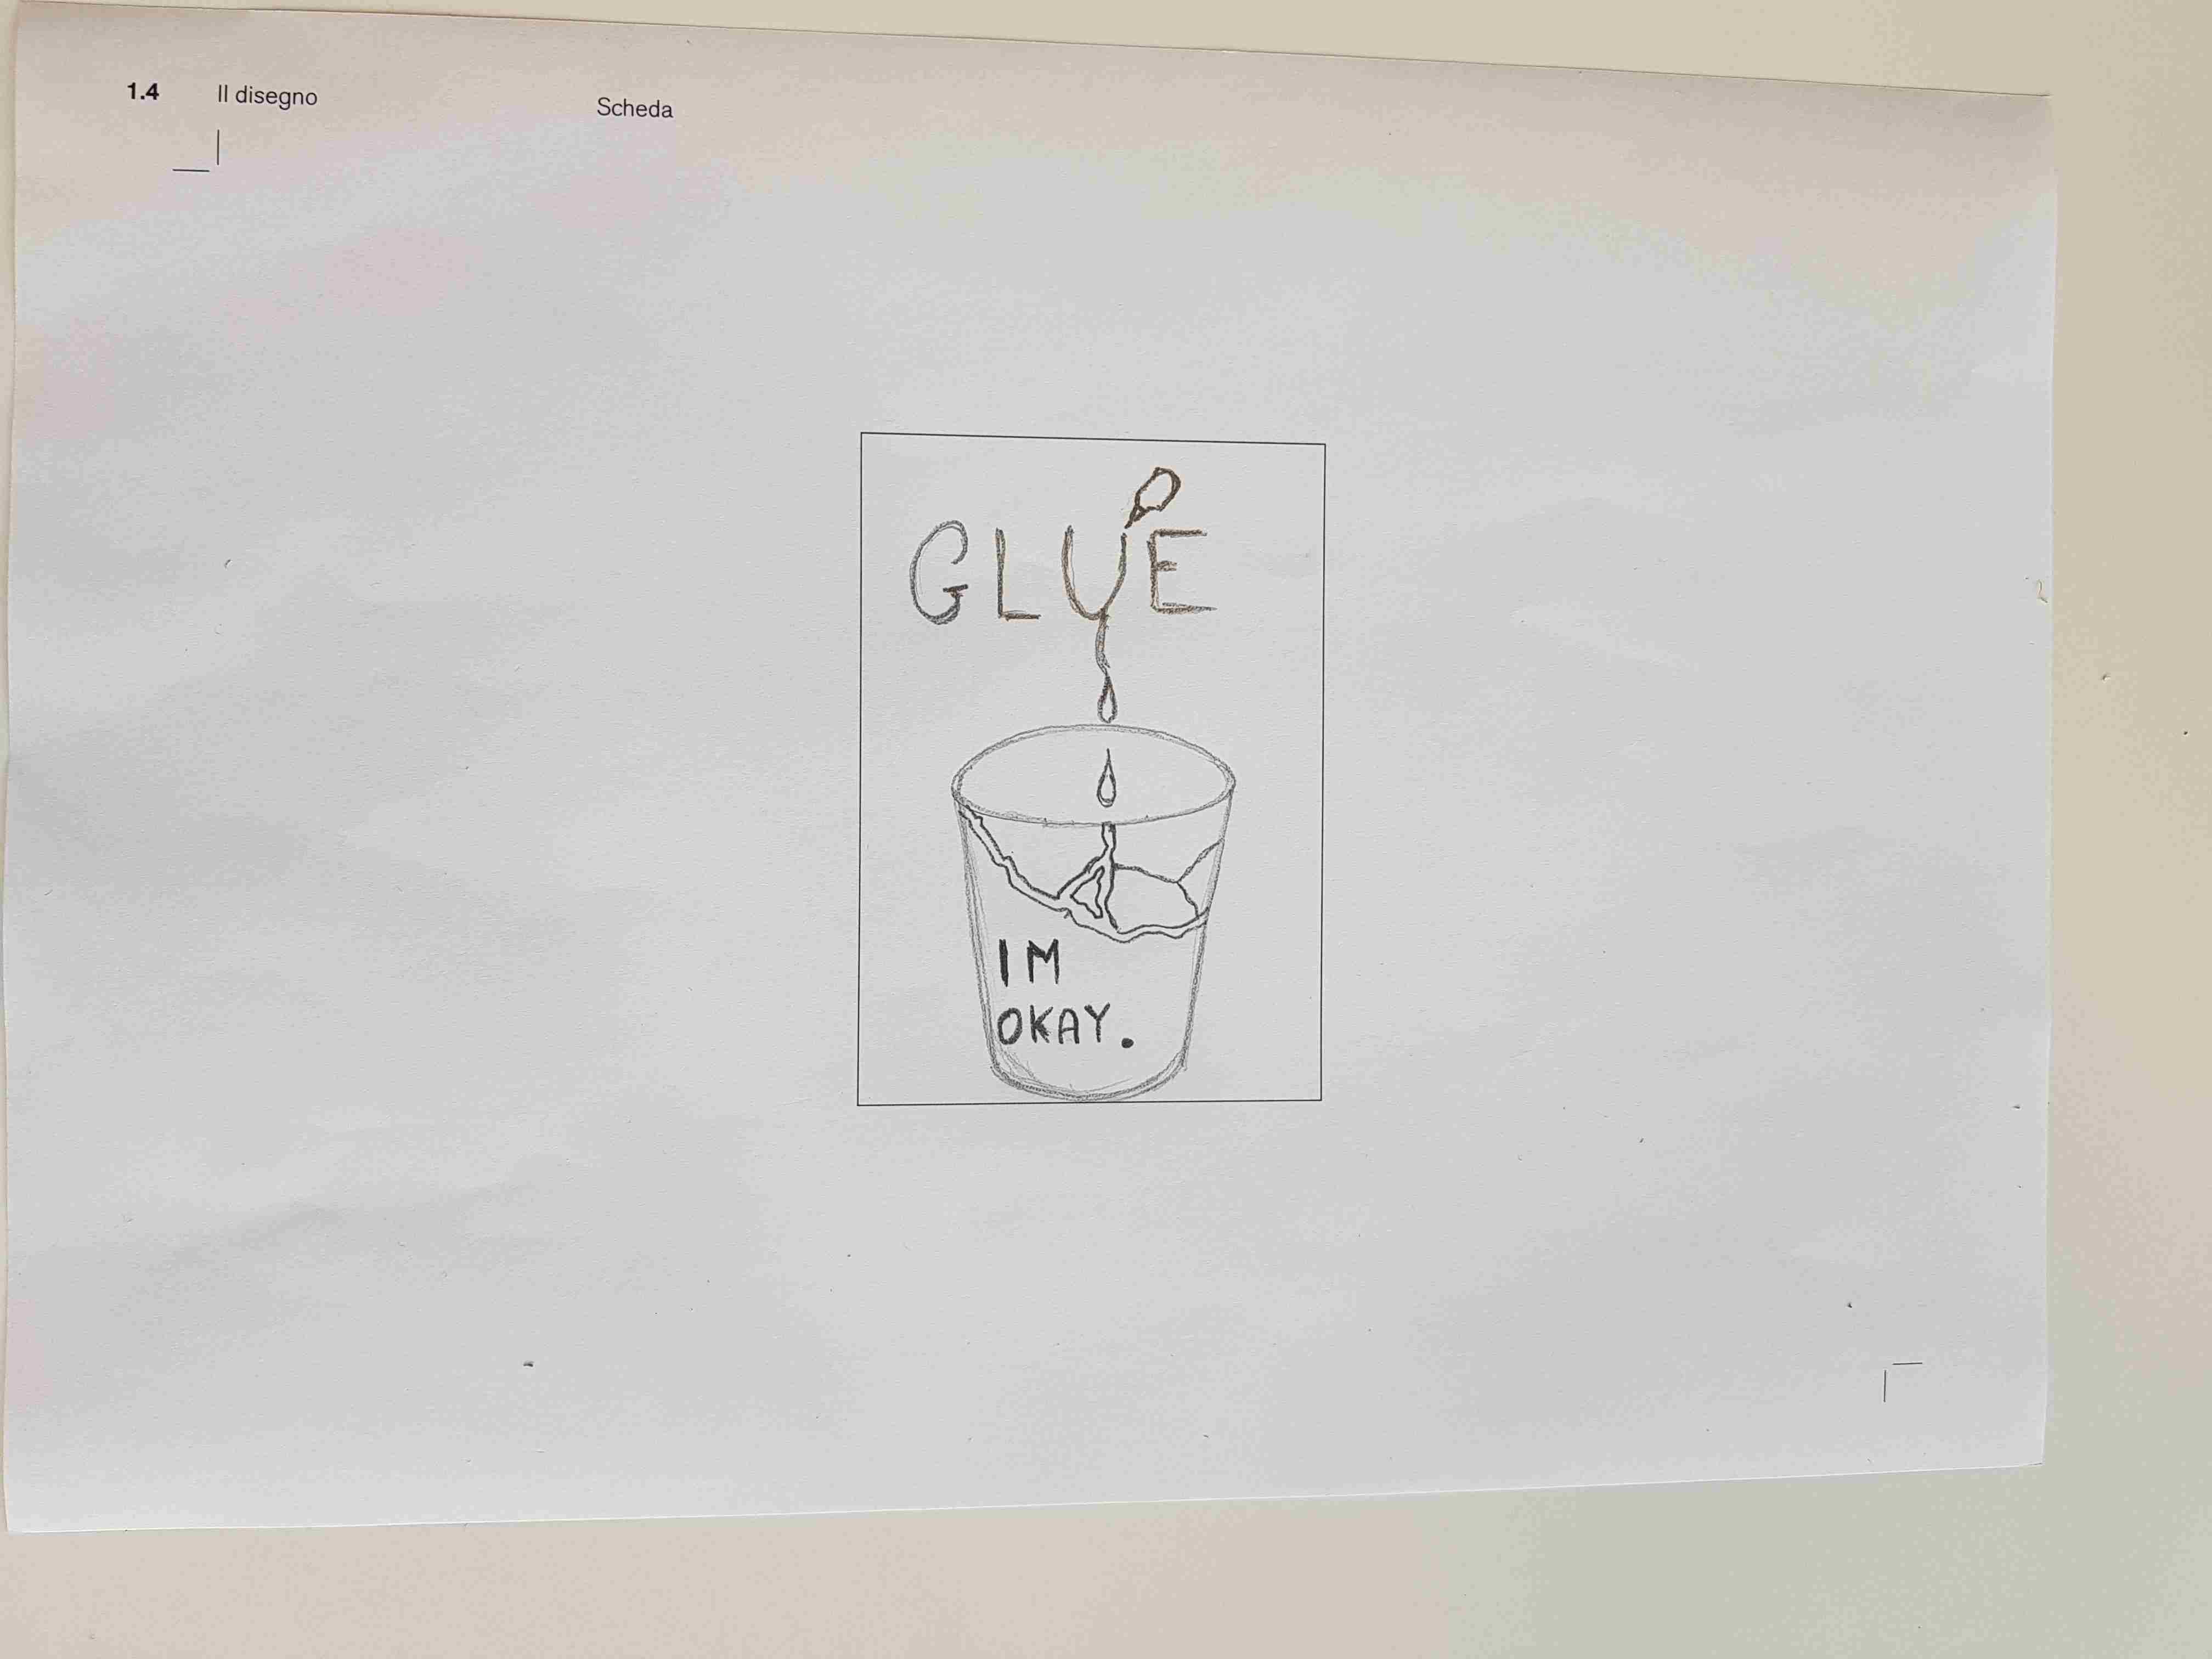 1.4 Il disegno Scheda
GLUE
IM
OKAY.